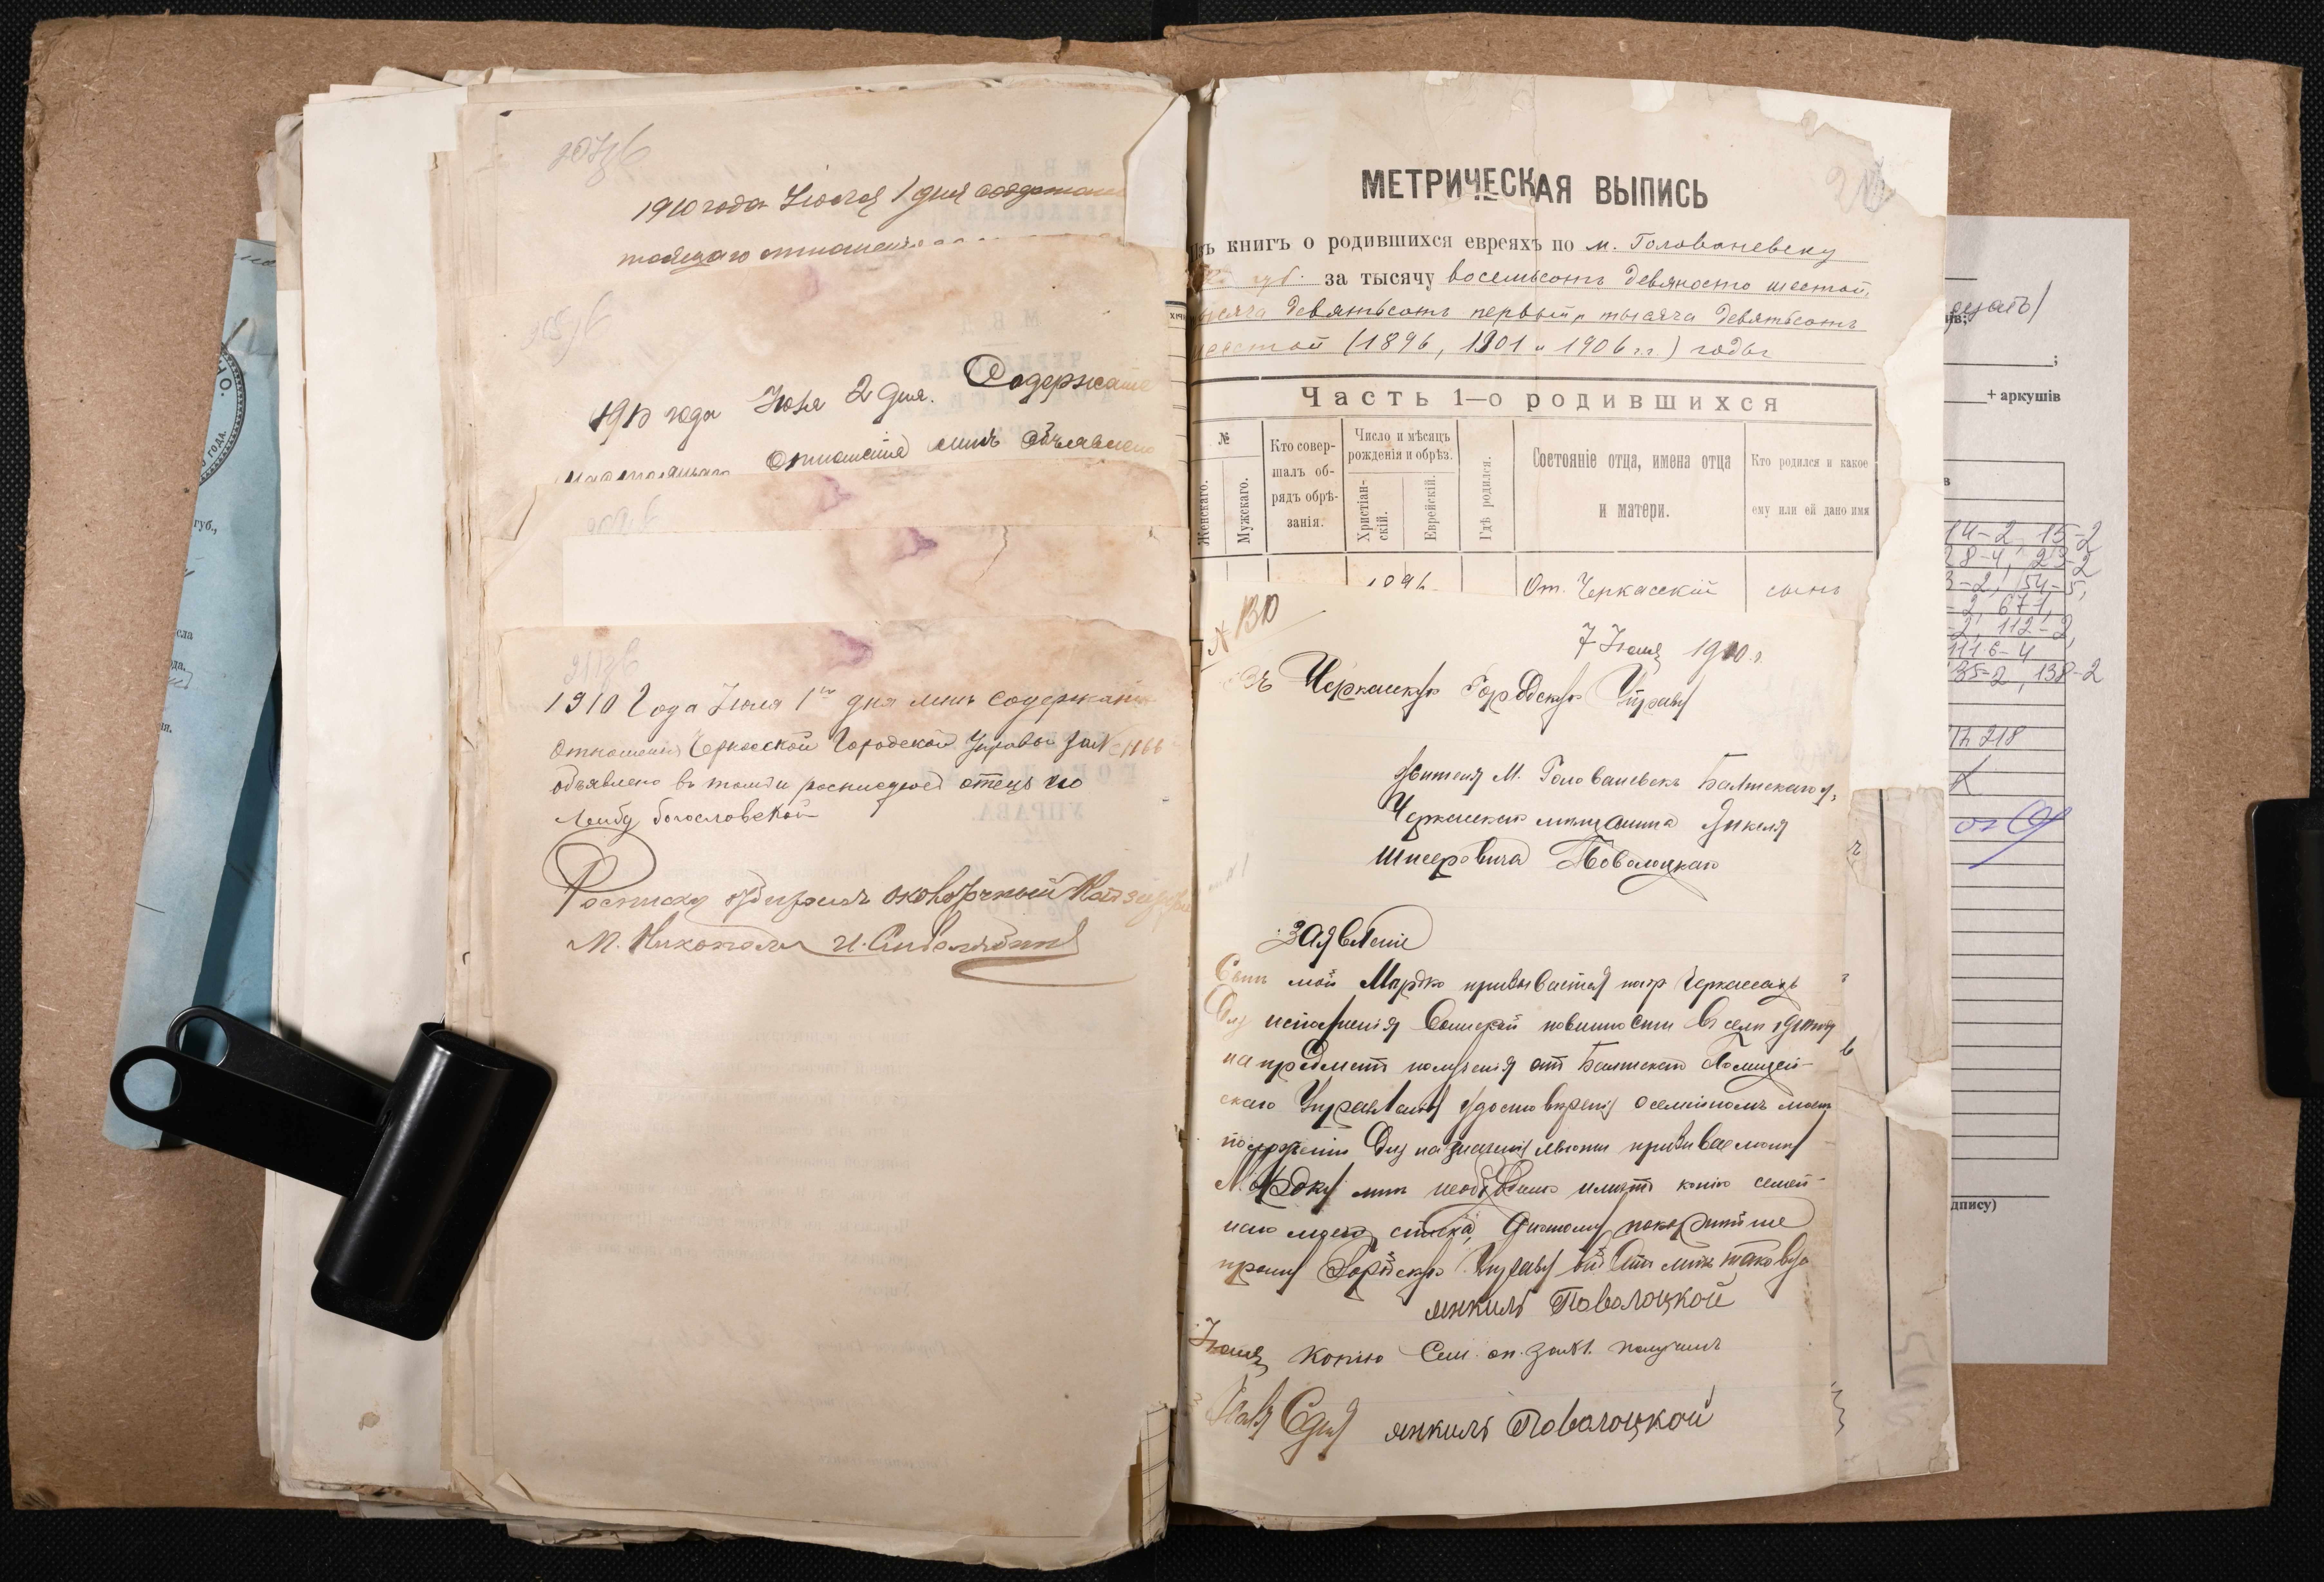 1910 года Июля 1 дня содержание
тоящаго отношения
1910 года Июля 2 дня. Содержание
настоящаго Отношенія мнѣ объявлено
1910 Года Июля 1го дня мнѣ содержаніе
Отношенія Черкасской Городской Управы за № 1166
объявлено въ томъ и росписуюсь отецъ его
Лейбъ Богословской
Росписку отбиралъ околоточный Надзиратель
М. Никополя
УПРАВА.
МЕТРИЧЕСКАЯ ВЫПИСЬ
Изъ книгъ о родившихся евреяхъ по м. Голованевску
губ. за тысячу восемьсотъ девяносто шестой,
тысяча девятьсотъ первый, тысяча девятьсотъ
шестой (1896, 1901 и 1906 гг) годы
Часть 1—о родившихся
№
Женскаго.
Мужскаго.
Кто совершалъ обрядъ обрѣзанія.
Число и мѣсяцъ рожденія и обрѣз.
Христіанскій.
Еврейскій.
Гдѣ родился.
Состояніе отца, имена отца и матери.
Кто родился и какое ему или ей дано имя
1896
От. Черкасскій
сынъ
№ 130
7 Июля 1910 г.
Въ Черкасскую Городскую Управу
Жителя М. Голованевскъ Балтскаго у.
Черкасскаго мѣщанина Янкеля
Шмеровича Поволоцкаго
Заявленіе
Сынъ мой Мордко призывается по гор Черкассахъ
Для исполненія Воинской повинности въ семъ 1910 году
на предметъ полученія отъ Балтскаго Полицей-
скаго Управленія удостовѣренія о семейномъ моемъ
положеніи Для назначенія льготы призываемому
Мордку мнѣ необходимо имѣть копію семей-
наго моего списка, а потому покорнѣйше
прошу Городскую Управу выдать мнѣ таковую
янкиль Поволоцкой
Июля копію Сем. сп. получилъ
янкиль Поволоцкой
+ аркушів
14-2, 15-2
28-4, 23-2
3-2, 54-5,
-2, 67-1,
-2, 112-2,
111б-4
135-2, 138-2
218
дпису)
губ.,
года.